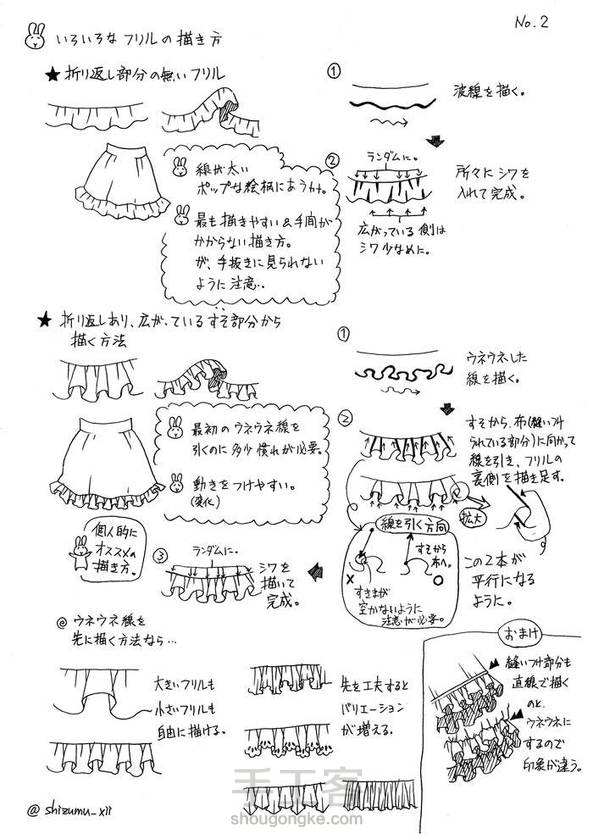 No.2
いろいろな フリルの描き方
★ 折り返し部分の無いフリル
①
波線を描く。
線が太い
ポップな絵柄におうけ。
最も描きやすい&手間が
かからない描き方。
が、手抜きに見られない
ように注意‥
②
ランダムに。
所々にシワを
入れて完成。
広がっている側は
シワ少なめに。
★ 折り返しあり、広がっているすそ部分から
描く方法
①
ウネウネした
線を描く。
最初のウネウネ線を
引くのに多少慣れが必要。
動きをつけやすい。
(変化)
②
すそから、布(縫いつけ
られている部分)に向かって
線を引き、フリルの
裏側を描き足す。
拡大
線を引く方向
すそから
布へ。
× ○
すきまが
空かないように
注意が必要。
この2本が
平行になる
ように。
個人的に
オススメの
描き方。
③
ランダムに。
シワを
描いて
完成。
@ ウネウネ線を
先に描く方法なら…
大きいフリルも
小さいフリルも
自由に描ける。
先を工夫すると
バリエーション
が増える。
おまけ
縫いつけ部分も
直線で描く
のと、
ウネウネに
するので
印象が違う。
@shizumu_xii
手工客
shougongke.com